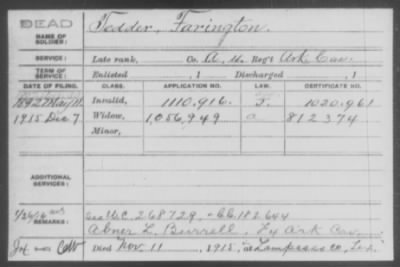 DEAD
NAME OF SOLDIER: Tedder, Farington.
SERVICE: Late rank, Co. Reg't Ark. Cav.
TERM OF SERVICE: Enlisted , 1 Discharged , 1
DATE OF FILING. CLASS. APPLICATION NO. LAW. CERTIFICATE NO.
1892 May 11. Invalid, 1110.916. J. 1020.961
1915 Dec 7 Widow, 1,056,949 a 812374
Minor,
ADDITIONAL SERVICES:
REMARKS: see W.C. 268729.
Abner L. Burrell, Ark Cav.
Died Nov. 11, 1915, at Lampasas Co, Tex.